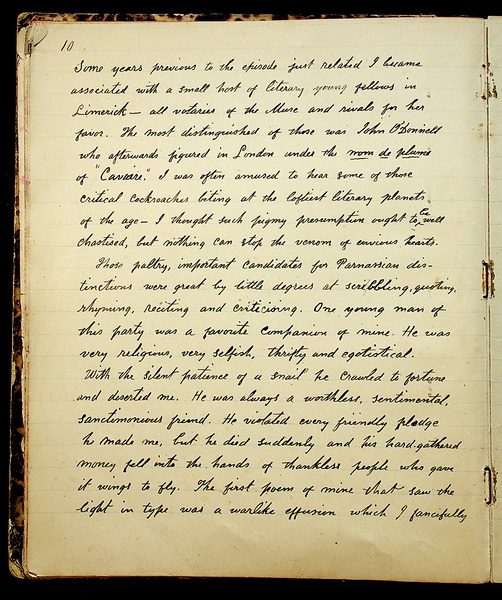 10
Some years previous to the episode just related I became
associated with a small host of literary young fellows in
Limerick — all votaries of the Muse and rivals for her
favor. The most distinguished of those was John O'Donnell
who afterwards figured in London under the nom de plume
of "Caviare." I was often amused to hear some of those
critical Cockroaches biting at the loftiest literary planets
of the age — I thought such pigmy presumption ought to be well
chastised, but nothing can stop the venom of envious hearts.
Those paltry, important candidates for Parnassian dis-
tinctions were great by little degrees at scribbling, quoting,
rhyming, reciting and criticising. One young man of
this party was a favorite companion of mine. He was
very religious, very selfish, thrifty and egotistical.
With the silent patience of a snail he crawled to fortune
and deserted me. He was always a worthless, sentimental,
sanctimonious friend. He violated every friendly pledge
he made me, but he died suddenly and his hard-gathered
money fell into the hands of thankless people who gave
it wings to fly. The first poem of mine that saw the
light in type was a warlike effusion which I fancifully